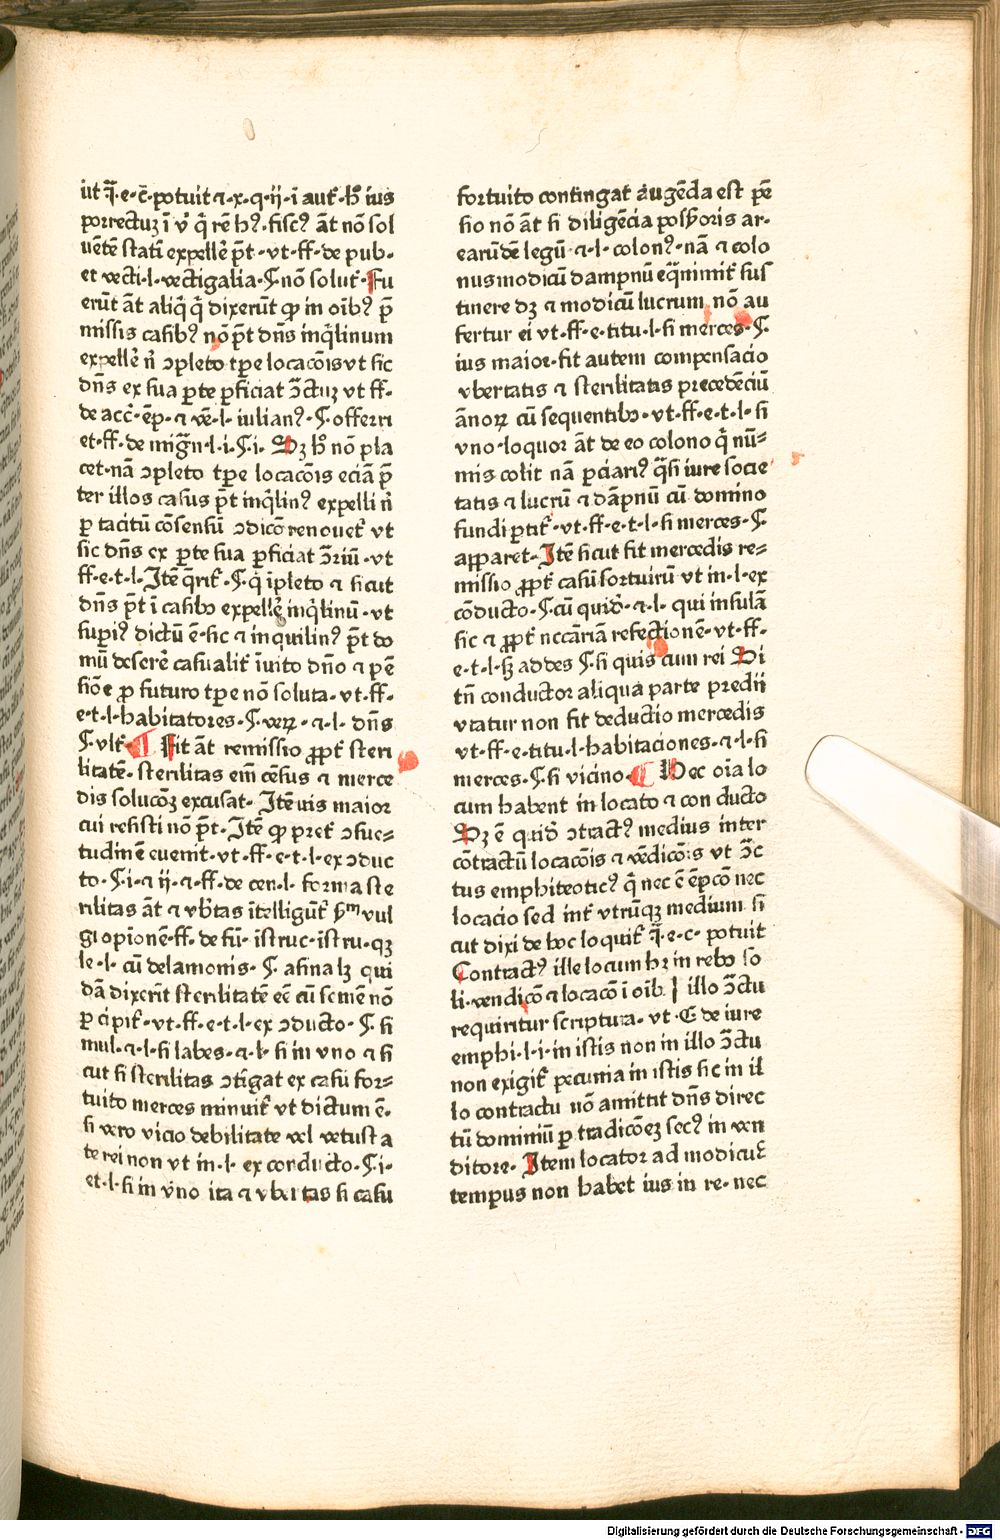 ut q̄.e.c̄.potuit ⁊.x.q.ij.ī aut̄.h̄ ius
porrectuꝫ ī vͦ q̇ rē hꝰ.fiscꝰ āt nō sol
uētē statī expellē p̄t.vt.ff.de pub.
et vecti.l.vectigalia.§.nō solut̄.Fu
erūt āt aliq̇ q̇ dixerūt ꝙ in oībꝰ p̄
missis casibꝰ nō p̄t dn̄s inq̇linum
expellē n̄ ↄpleto tp̄e locacōis vt sic
dn̄s ex sua ꝑte ꝑficiat ↄ̄ctuꝫ vt ff.
de acc̄.ēp.⁊ vē.l.iulianꝰ.§.offerri
et.ff.de migr̄n.l.i.§.i. Sꝫ h̄ nō pla
cet.nā ↄpleto tp̄e locacōis eciā p̄
ter illos casus p̄t inq̇linꝰ expelli n̄
ꝑ tacitū cōsensū ↄdicō renouet̄ vt
sic dn̄s ex ꝑte sua ꝑficiat ↄ̄riū.vt
ff.e.t.l.Itē q̄rit̄.§.q̇ īpleto ⁊ sicut
dn̄s p̄t ī casibꝫ expellē inq̇linū.vt
supiꝰ dictū ē.sic ⁊ inquilinꝰ p̄t do
mū deserē casualit̄ īuito dn̄o ⁊ pē
siōe ꝓ futuro tp̄e nō soluta.vt.ff.
e.t.l.habitatores.§.veꝝ.⁊.l. dn̄s
§.vlt̄. ¶ Fit āt remissio ꝓpt̄ steri
litatē.sterilitas em̄ cēsus ⁊ merce
dis solucōꝫ excusat.Itē vis maior
cui resisti nō p̄t.Itē ꝙ pret̄ ↄsue⸗
tudinē euenit.vt.ff.e.t.l.ex ↄduc
to.§.i.⁊ ij.⁊.ff.de cen.l. forma ste
rilitas āt ⁊ vb̄tas ītelligūt̄ ẜm vul
gi opionē.ff.de fū.īstruc.īstru.qꝫ
le.l. cū delamonis.§. asina lꝫ qui
dā dixerīt sterilitatē eē cū semē nō
ꝑcipit̄.vt.ff.e.t.l.ex ↄducto.§.si
mul.⁊.l.si labes.⁊.l. si in vno ⁊ si
cut si sterilitas ↄtīgat ex casu for⸗
tuito merces minuit̄ vt dictum ē.
si vero vicio debilitate vel vetusta
te rei non vt in.l. ex conducto.§.i.
et.l.si in vno ita ⁊ vbertas si casu
fortuito contingat̄ augēda est pē
sio nō āt si diligēcia posꝫoris ar.
earūdē legū ⁊.l.colonꝰ.nā ⁊ colo
nus modicū dampnū eq̄nimit̄ sus
tinere dꝫ ⁊ modicū lucrum nō au
fertur ei vt.ff.e.titu.l.si merces.§.
ius maior.fit autem compensacio
vbertatis ⁊ sterilitatis precedēciū
ānoꝝ cū sequentibꝫ.vt.ff.e.t.l.si
vno.loquor āt de eo colono q̇ nū⸗
mis colit nā ꝑciariꝰ q̄si iure socie
tatis ⁊ lucrū ⁊ dāpnū cū domino
fundi ꝑtit̄.vt.ff.e.t.l.si merces.§.
apparet.Itē sicut fit mercedis re⸗
missio ꝓpt̄ casū fortuitū vt in.l.ex
cōducto.§.cū quid̄.⁊.l. qui insulā
sic ⁊ ꝓpt̄ nccāriā refectionē.vt.ff.
e.t.l.ẜꝫ addes §.si quis cum rei Si
tn̄ conductor aliqua parte predii
vtatur non fit deductio mercedis
vt.ff.e.titu.l.habitaciones.⁊.l.si
merces.§.si vicino. ¶ Hec oīa lo
cum habent in locato ⁊ con ducto
Sꝫ ē quid̄ ↄtractꝰ medius inter
cōtractū locacōis ⁊ vēdicōis vt ↄ̄c
tus emphiteoticꝰ q̇ nec ē ēpcō nec
locacio sed int̄ vtrūqꝫ medium si
cut dixi de hoc loquit̄ q̄.e.c. potuit
Contractꝰ ille locum hꝫ in rebꝫ so
li.vendicō ⁊ locacō ī oīb. I illo ↄ̄ctu
requiritur scriptura.vt.C de iure
emphi.l.i.in istis non in illo ↄ̄ctu
non exigit̄ pecunia in istis sic in il
lo contractu nō amittit dn̄s direc
tū dominiū ꝑ tradicōeꝫ secꝰ in ven
ditore. Item locator ad modicū
tempus non habet ius in re.nec
Digitalisierung gefördert durch die Deutsche Forschungsgemeinschaft - DFG